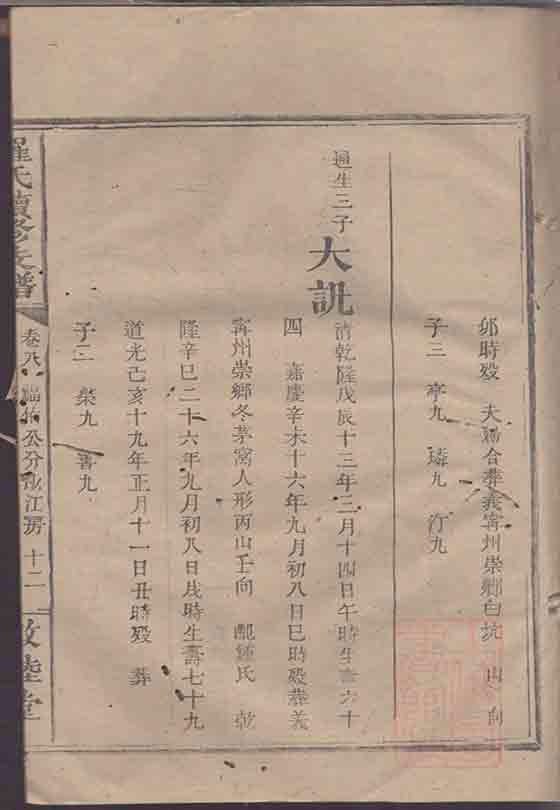 卯時殁 夫婦合葬義寧州崇鄉白坑 山 向
子三 亭九 璘九 汀九
過生三子
大訓
清乾隆戊辰十三年三月十四日午時生壽六十
四 嘉慶辛未十六年九月初八日巳時殁葬義
寧州崇鄉冬茅窩人形丙山壬向 配鍾氏 乾
隆辛巳二十六年九月初八日戌時生壽七十九
道光己亥十九年正月十一日丑時殁 葬
子二 榮九 善九
羅氏續修支譜
卷八 公分 江房 十二
敦睦堂